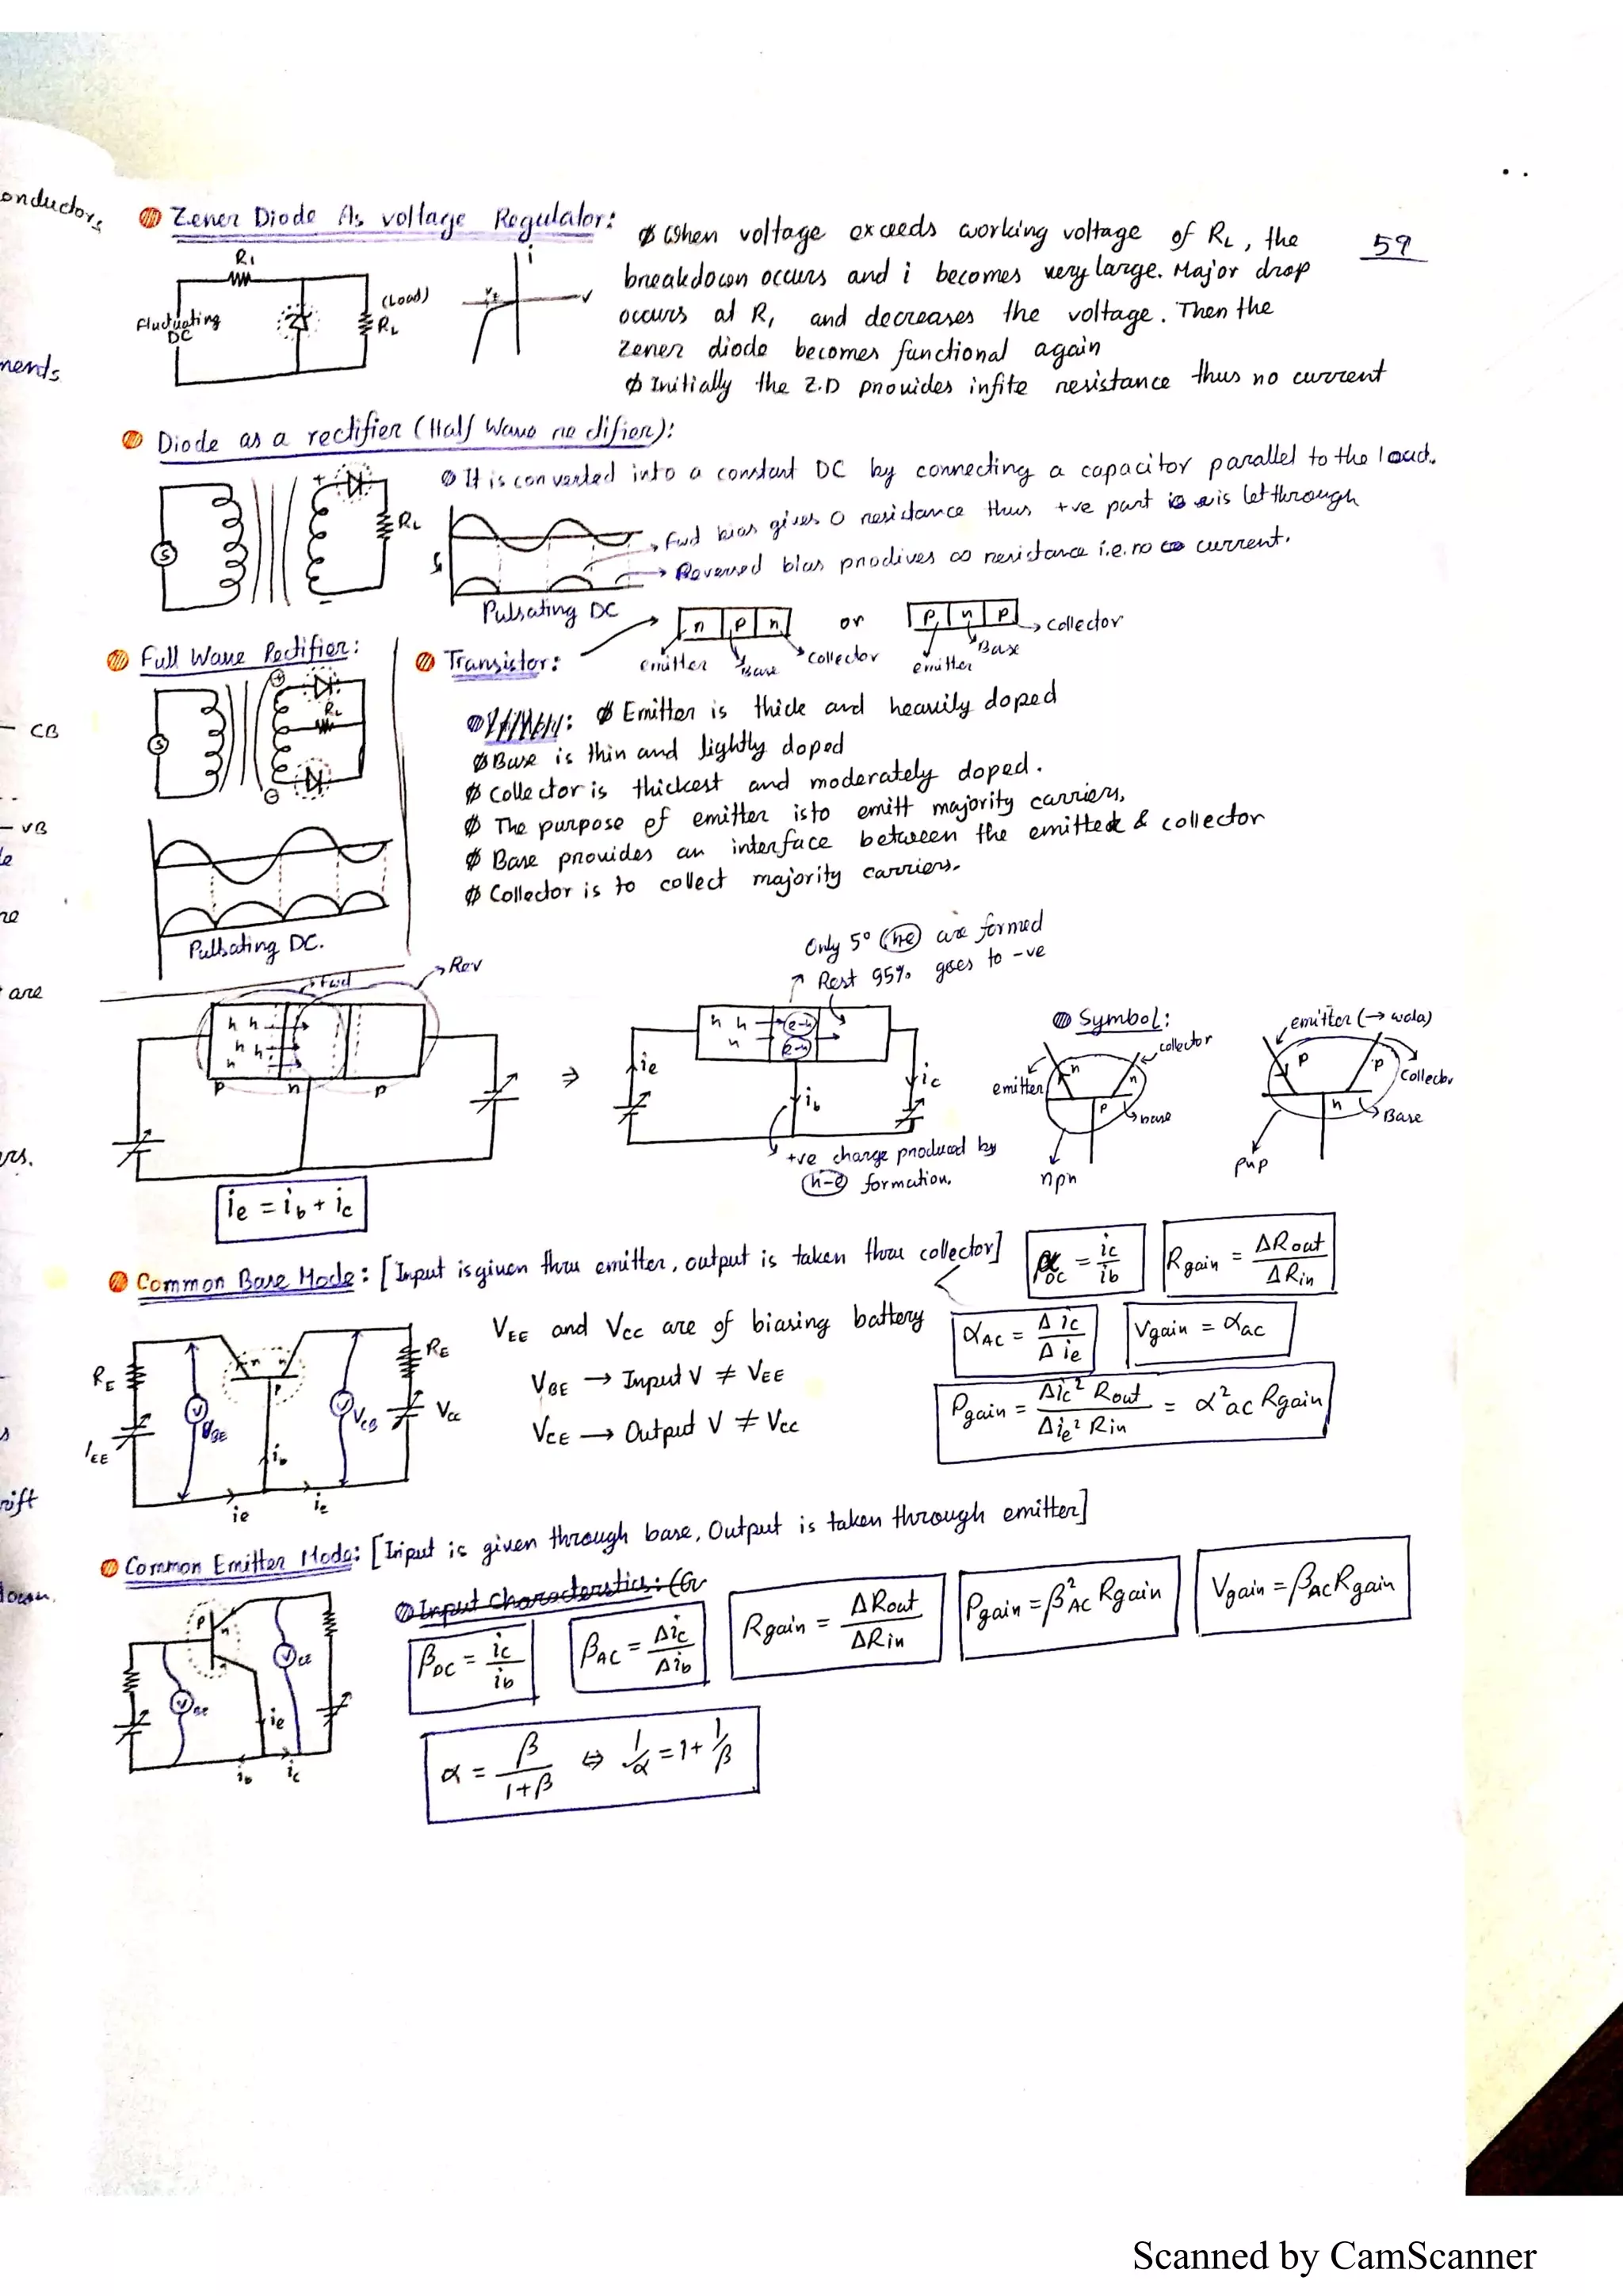 onductors
Zener Diode As voltage Regulator:
59
When voltage exceeds working voltage of RL, the
breakdown occurs and i becomes very large. Major drop
occurs at R1 and decreases the voltage. Then the
Zener diode becomes functional again
Initially the Z.D provides infite resistance thus no current
R1
Fluctuating
DC
(Load)
RL
i
Vz
V
ments
Diode as a rectifier (Half Wave re difier):
It is converted into a constant DC by connecting a capacitor parallel to the load.
S
+
-
RL
Fwd bias gives 0 resistance thus +ve part is let through
Reversed bias prodives ∞ resistance i.e. no current.
Pulsating DC
Full Wave Rectifier:
S
+
RL
-
Pulsating DC.
Transistor:
n p n
or
p n p
emitter
Base
collector
emitter
Base
collector
Emitter is thick and heavily doped
Base is thin and lightly doped
Collector is thickest and moderately doped.
The purpose of emitter is to emitt majority carriers.
Base provides an interface between the emitted & collector
Collector is to collect majority carriers.
- CB
- VB
le
are
Fwd
Rev
h h
h h
h
p n p
ie = ib + ic
⇒
Only 5% (he) are formed
Rest 95% goes to -ve
h h
h
e-h
e-h
ie
ib
ic
+ve charge produced by
(h-e) formation.
Symbol:
emitter
collector
n
n
p
base
npn
emitter (→ wala)
p
p
n
Collector
Base
pnp
Common Base Mode: [Input is given thru emitter, output is taken thru collector]
DC = ic/ib
Rgain = ΔRout/ΔRin
VEE and VCC are of biasing battery
αAC = Δic/Δie
Vgain = αac
VBE → Input V ≠ VEE
VCE → Output V ≠ Vcc
Pgain = Δic² Rout/Δie² Rin = α²ac Rgain
RE
n
n
p
RE
VCB
Vcc
ib
ie
Common Emitter Mode: [Input is given through base, Output is taken through emitter]
Input Characterstics: (Gr
βDC = ic/ib
βAC = Δic/Δib
Rgain = ΔRout/ΔRin
Pgain = β²AC Rgain
Vgain = βAC Rgain
p
n
V CE
V BE
ie
ib
ic
α = β/1+β ⇔ 1/α = 1 + 1/β
Scanned by CamScanner